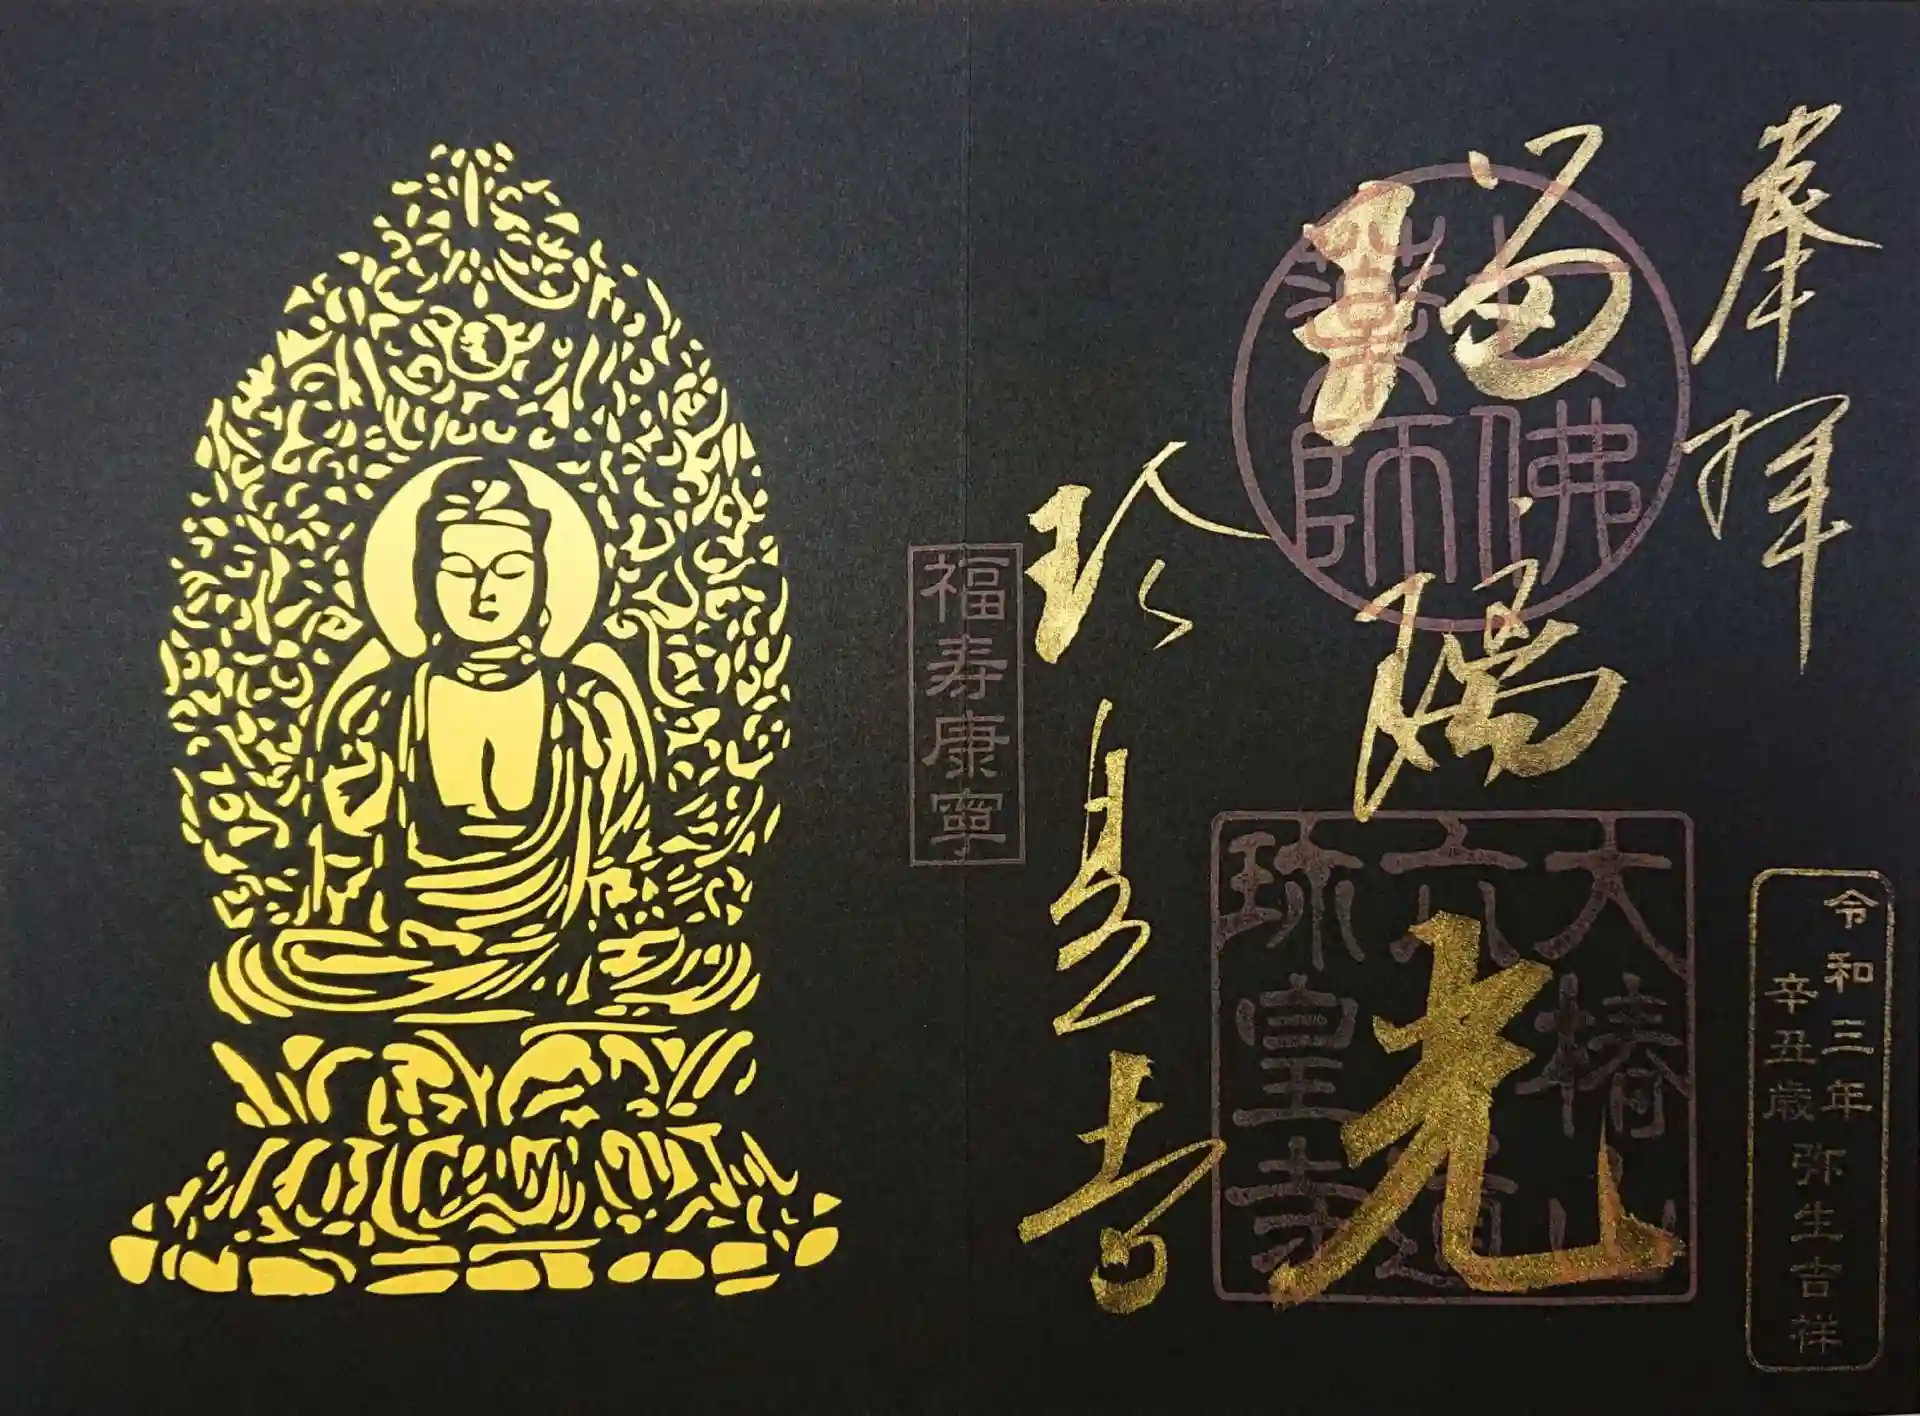 奉拝
令和三年
辛丑歳
弥生吉祥
瑠璃光
佛
薬師
大椿山
六道
珎皇寺
珍皇寺
福寿康寧